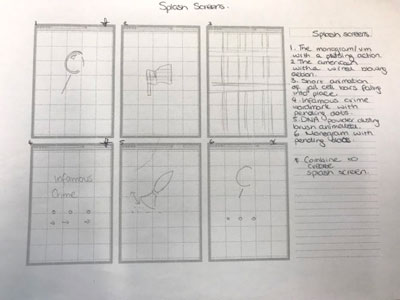 Splash Screens.
Splash screens.
1. The monogram/vim
with a pulling action.
2. The american
with a wired blowing
action.
3. Short animation
of jail cell bars falling
into place.
4. Infamous crime
wordmark with
pending dots.
5. DNA powder dusting
brush animated.
6. Monogram with
pending dots.
* Combine to
create
splash screen.
Infamous
Crime